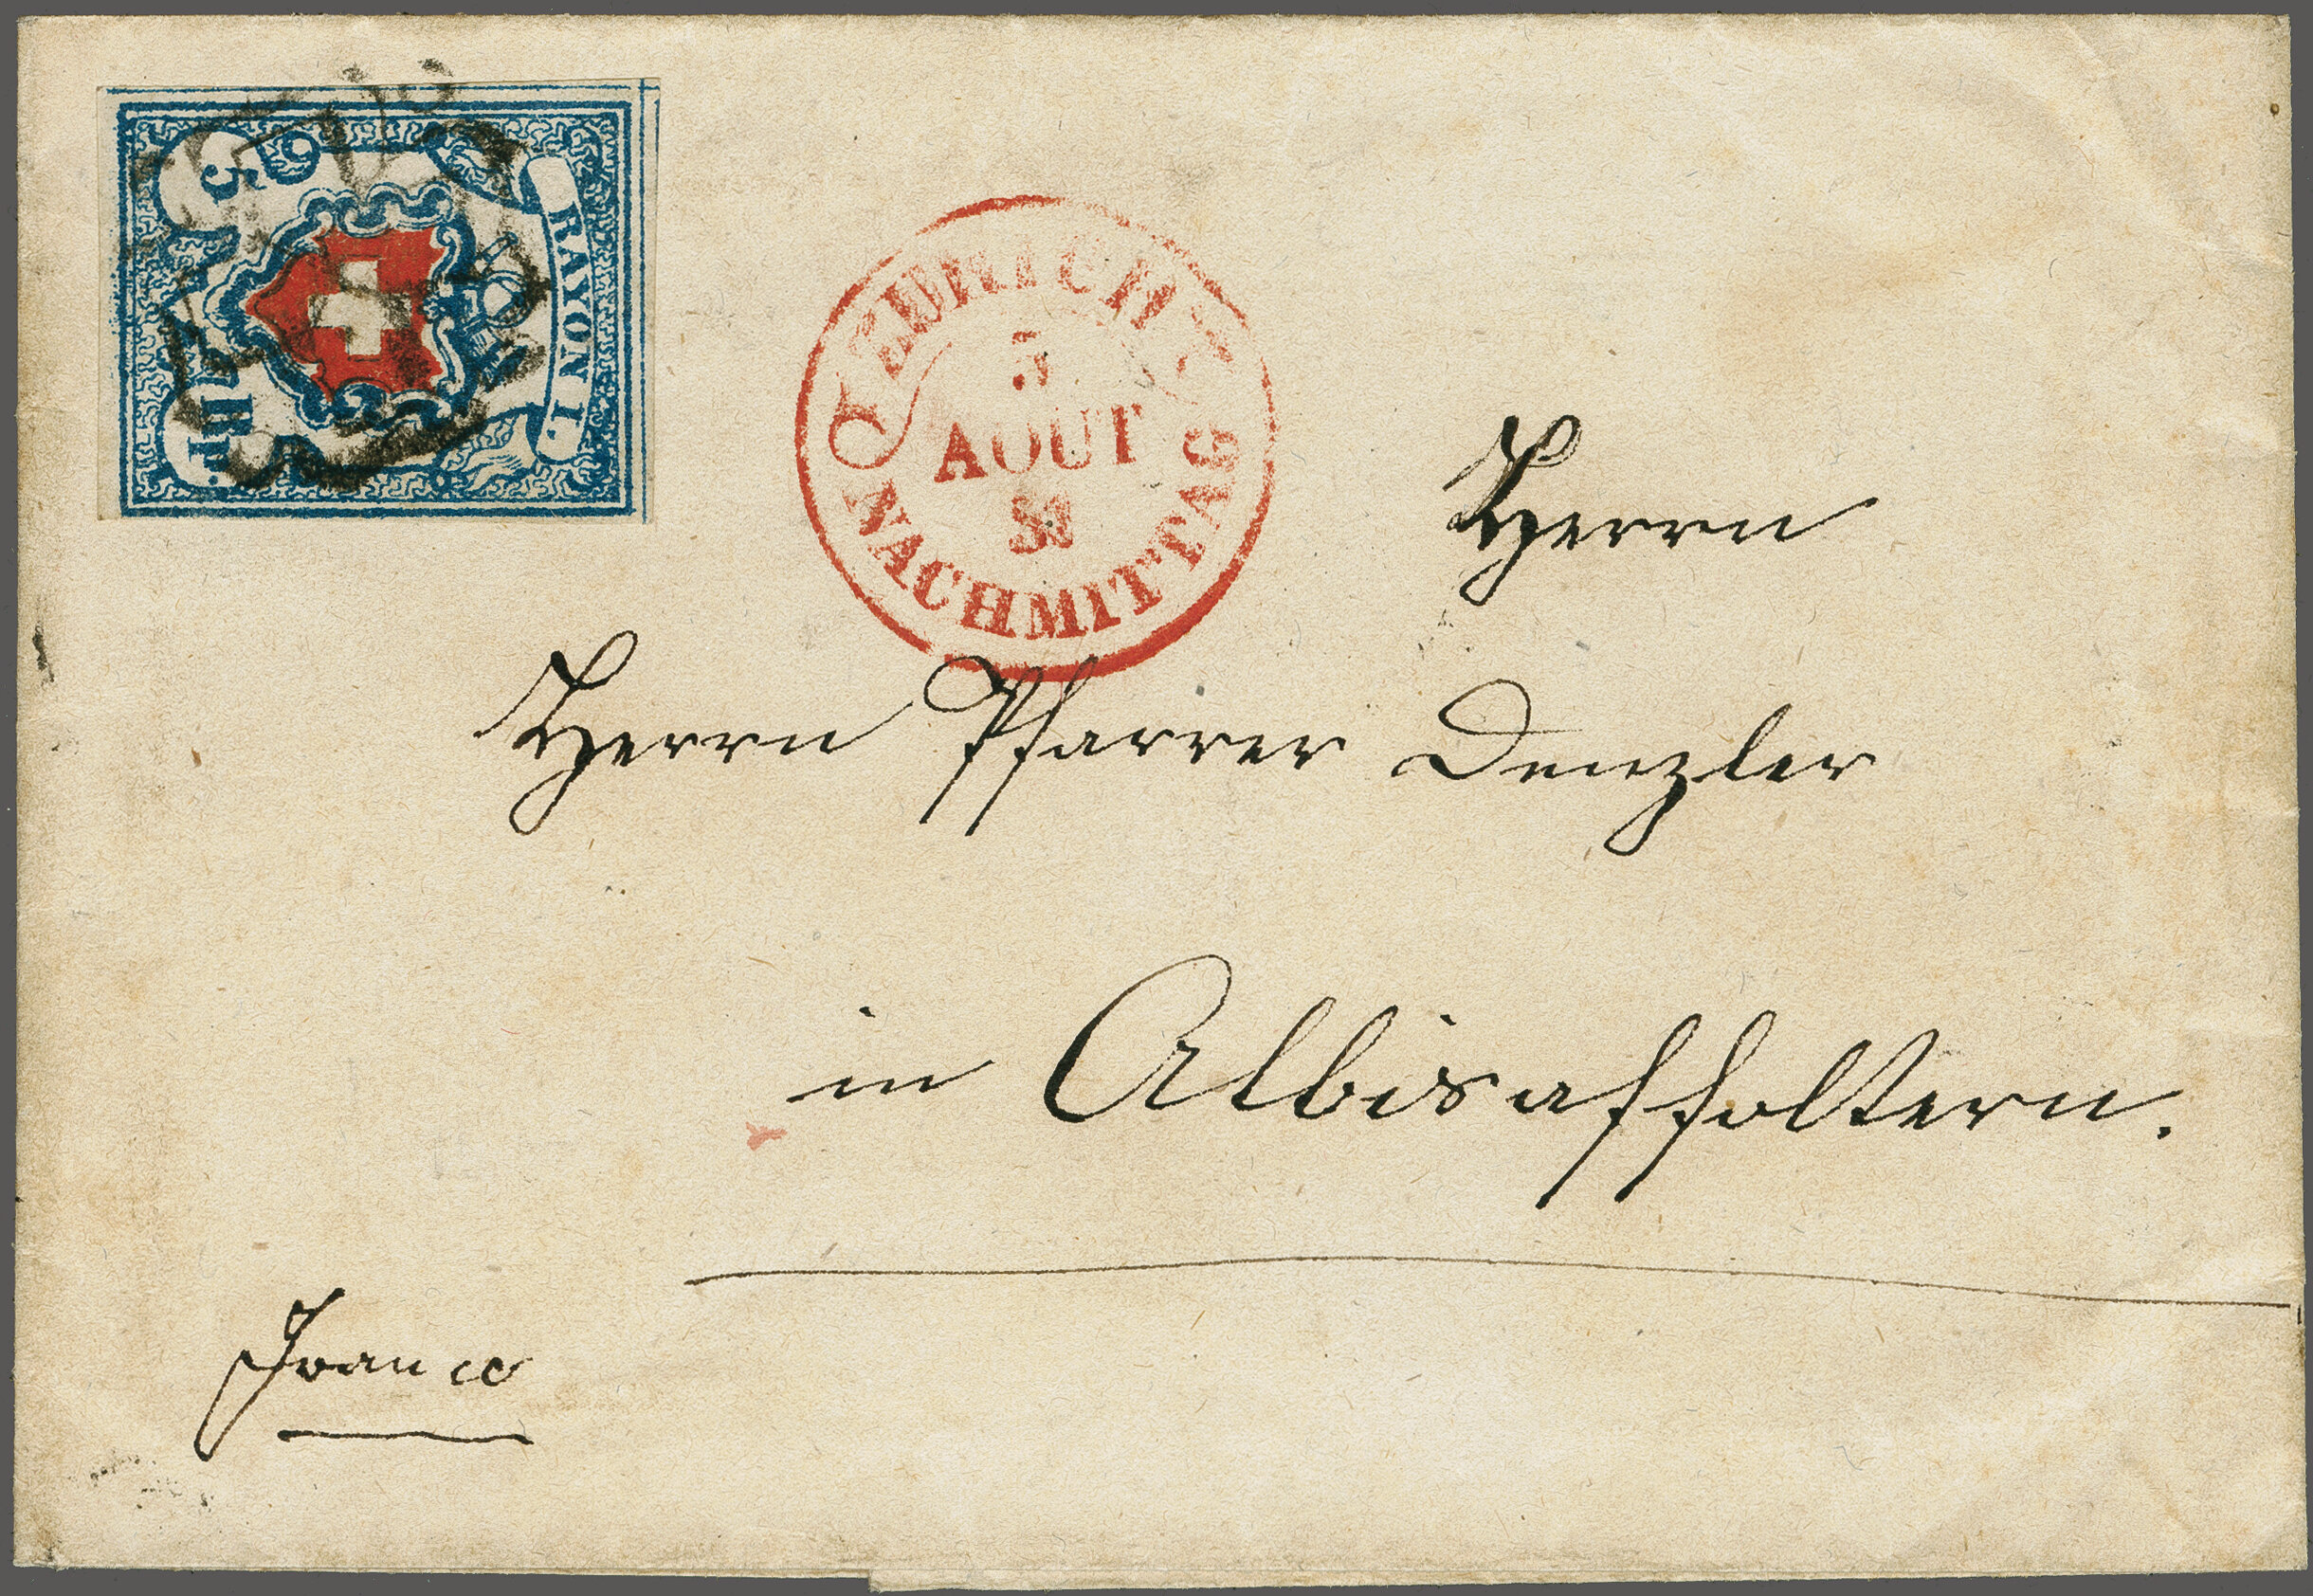 RAYON I.
5 RP.
ZÜRICH
5
AOUT
NACHMITTAG
Herrn
Herrn Pfarrer Denzler
in Albisaffoltern.
Franco